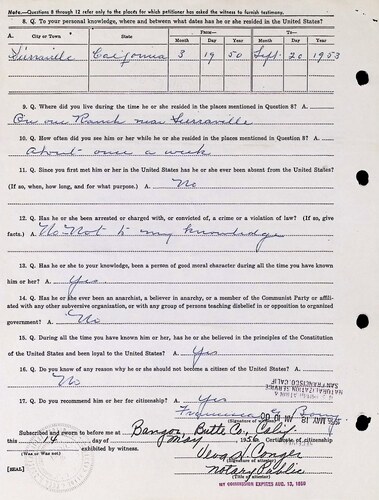 NOTE.—Questions 8 through 12 refer only to the places for which petitioner has asked the witness to furnish testimony.
8. Q. To your personal knowledge, where and between what dates has he or she resided in the United States?
A. City or Town State From— To—
Month Day Year Month Day Year
Sierraville California 3 19 50 Sept. 20 1953
9. Q. Where did you live during the time he or she resided in the places mentioned in Question 8? A.
On our Ranch near Sierraville
10. Q. How often did you see him or her while he or she resided in the places mentioned in Question 8? A.
About once a week
11. Q. Since you first met him or her has he or she ever been absent from the United States?
(If so, when, how long, and for what purpose.) A. No
12. Q. Has he or she been arrested or charged with, or convicted of, a crime or a violation of law? (If so, give
facts.) A. No-Not to my knowledge
13. Q. Has he or she to your knowledge, been a person of good moral character during all the time you have known
him or her? A. Yes.
14. Q. Has he or she ever been an anarchist, a believer in anarchy, or a member of the Communist Party or affili-
ated with any other subversive organization, or with any group of persons teaching disbelief in or opposition to organized
government? A. No
15. Q. During all the time you have known him or her, has he or she believed in the principles of the Constitution
of the United States and been loyal to the United States? A. Yes
16. Q. Do you know of any reason why he or she should not become a citizen of the United States? A.
No
17. Q. Do you recommend him or her for citizenship? A. Yes
NATURALIZATION SERVICE
SAN FRANCISCO, CALIF
(Signature of affiant)
Subscribed and sworn to before me at Bangor, Butte Co., Calif.
this 14 day of May, 19 Certificate of citizenship
exhibited by witness.
(Was or Was not) (Signature of attester)
Notary Public
[SEAL] (Title of attester)
MY COMMISSION EXPIRES AUG. 13,